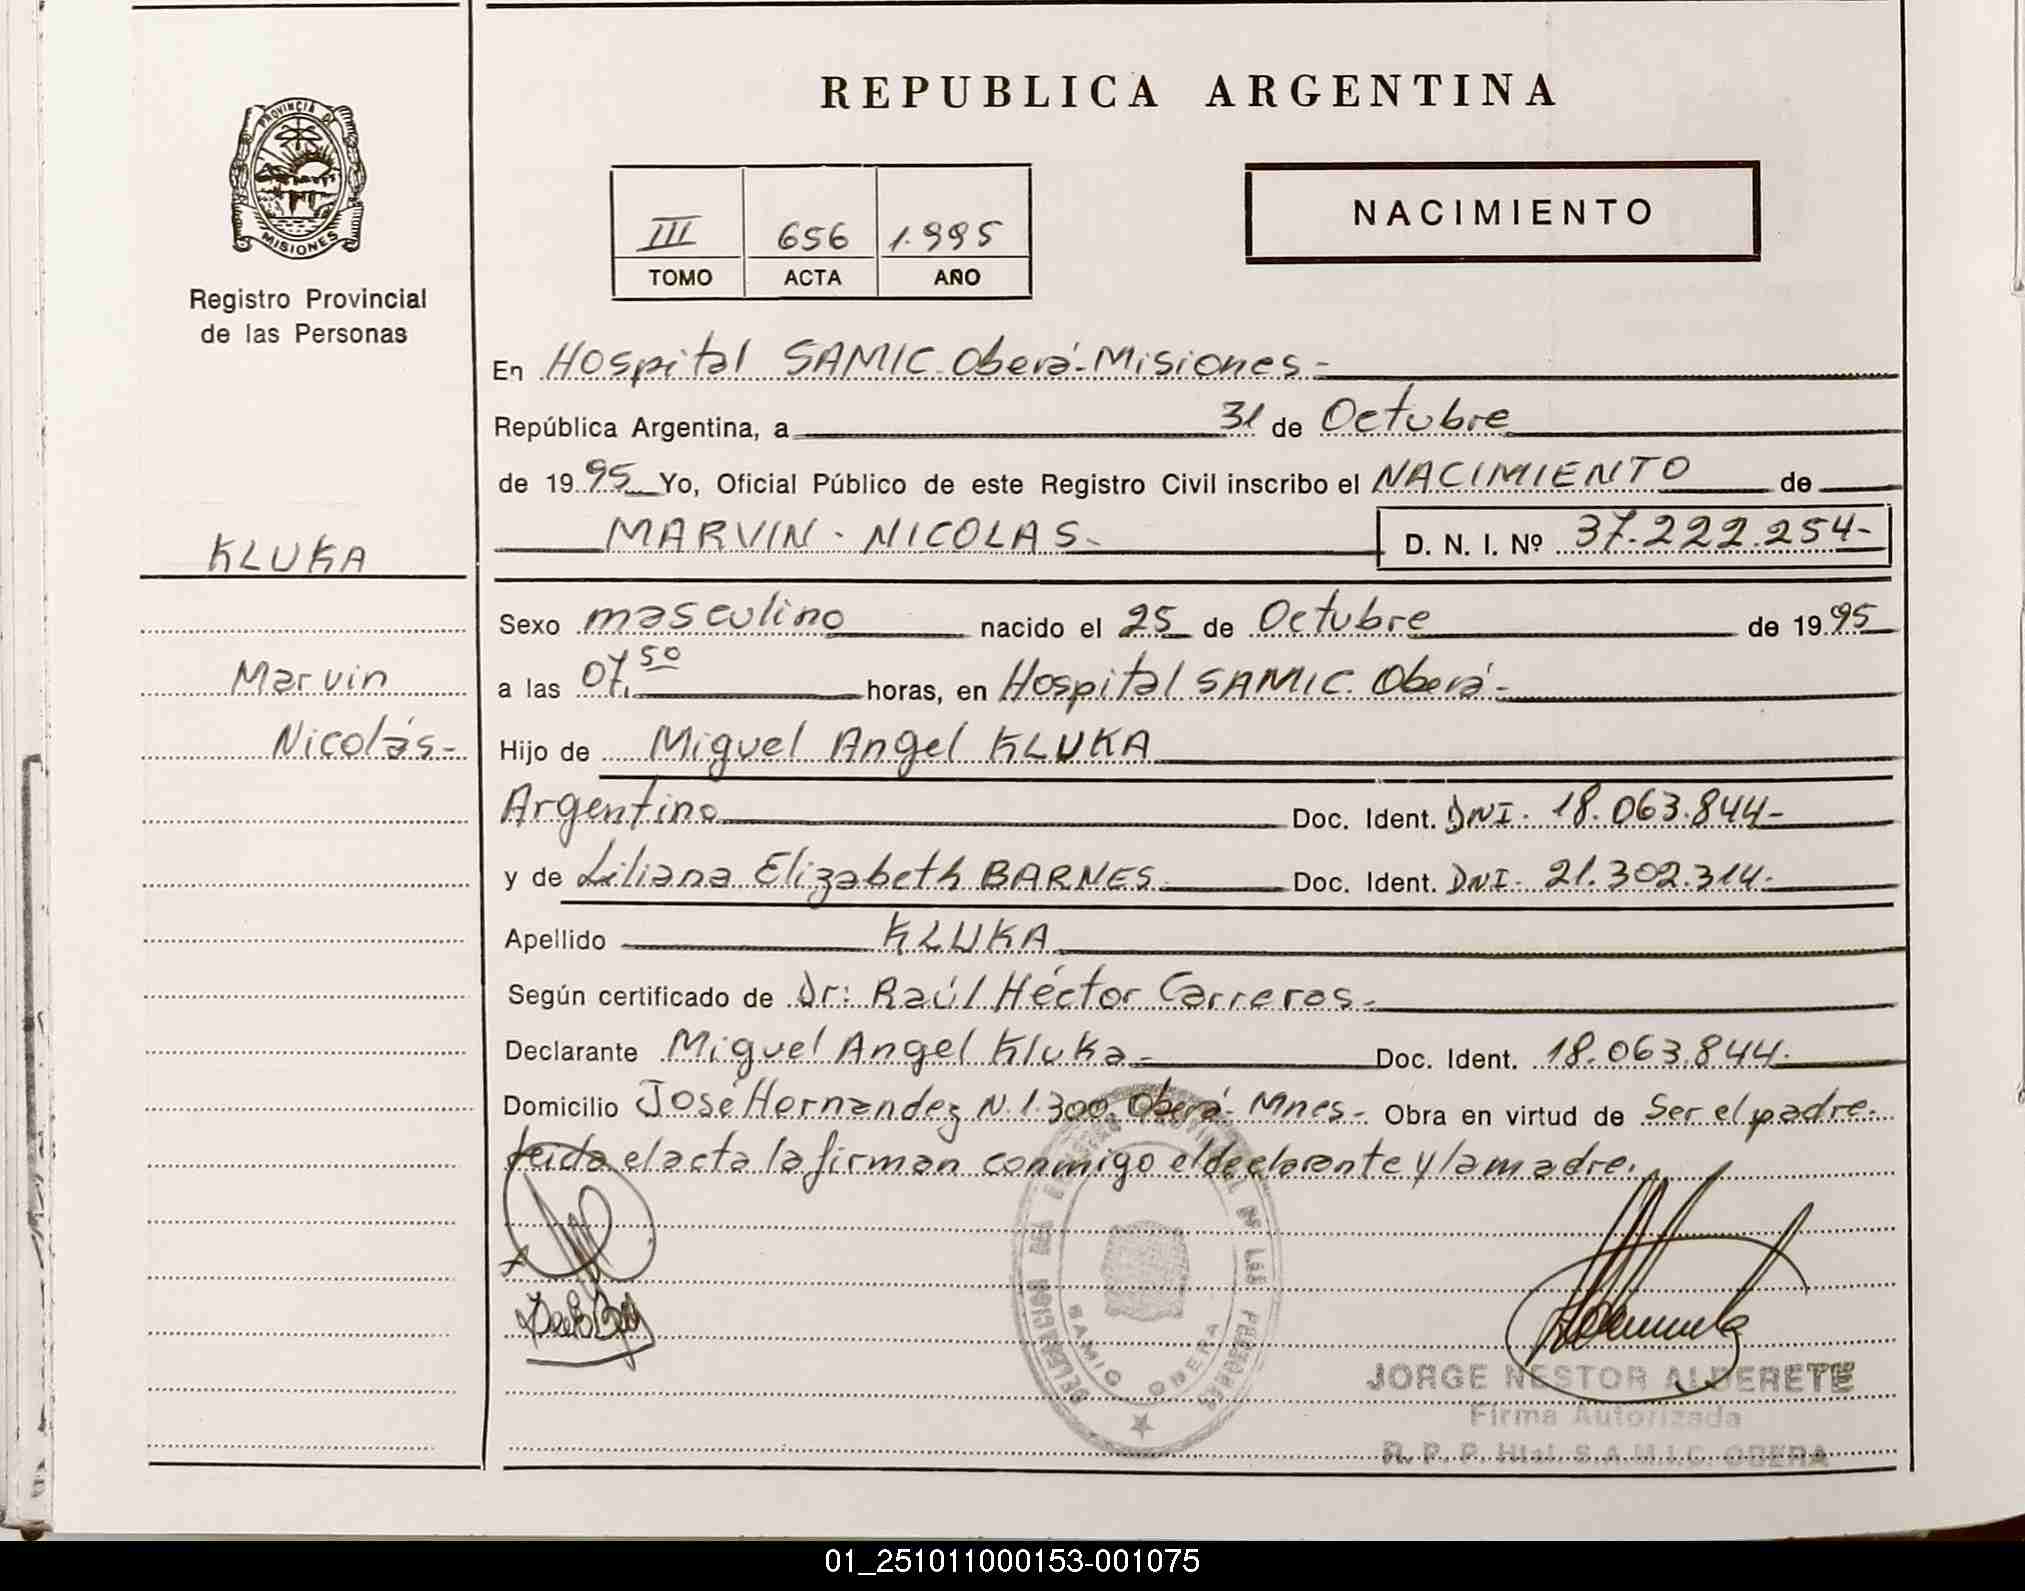 PROVINCIA DE
MISIONES
Registro Provincial
de las Personas
KLUKA
Marvin
Nicolás-
REPUBLICA ARGENTINA
III 656 1.995
TOMO ACTA AÑO
NACIMIENTO
En Hospital SAMIC-Oberá-Misiones-
República Argentina, a 31 de Octubre
de 1995 Yo, Oficial Público de este Registro Civil inscribo el NACIMIENTO de
MARVIN-NICOLAS- D. N. I. Nº 37.222.254-
Sexo masculino nacido el 25 de Octubre de 1995
a las 07.50 horas, en Hospital SAMIC. Oberá-
Hijo de Miguel Angel KLUKA
Argentino Doc. Ident. DNI- 18.063.844-
y de Liliana Elizabeth BARNES- Doc. Ident. DNI- 21.302.314-
Apellido KLUKA
Según certificado de Dr: Raúl Héctor Carreras-
Declarante Miguel Angel Kluka- Doc. Ident. 18.063.844-
Domicilio José Hernandez N 1.300, Oberá- Mnes- Obra en virtud de Ser el padre.
Leida el acta la firman conmigo el declarante y la madre.
DELEGACION DEL REGISTRO PROVINCIAL DE LAS PERSONAS
SAMIC OBERA
JORGE NESTOR ALDERETE
Firma Autorizada
R. P. P. Htal. S.A.M.I.C. OBERA
01_251011000153-001075